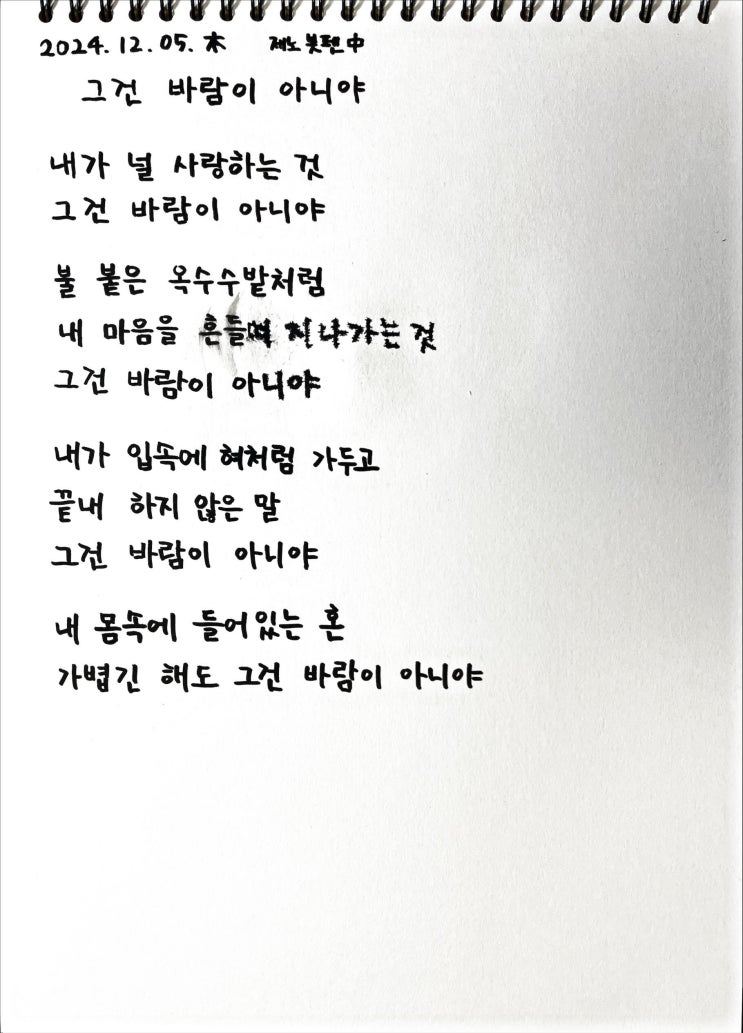 2024. 12. 05. 木 제노 붓펜 中
그건 바람이 아니야
내가 널 사랑하는 것
그건 바람이 아니야
불 붙은 옥수수밭처럼
내 마음을 흔들며 지나가는 것
그건 바람이 아니야
내가 입속에 혀처럼 가두고
끝내 하지 않은 말
그건 바람이 아니야
내 몸속에 들어있는 혼
가볍긴 해도 그건 바람이 아니야